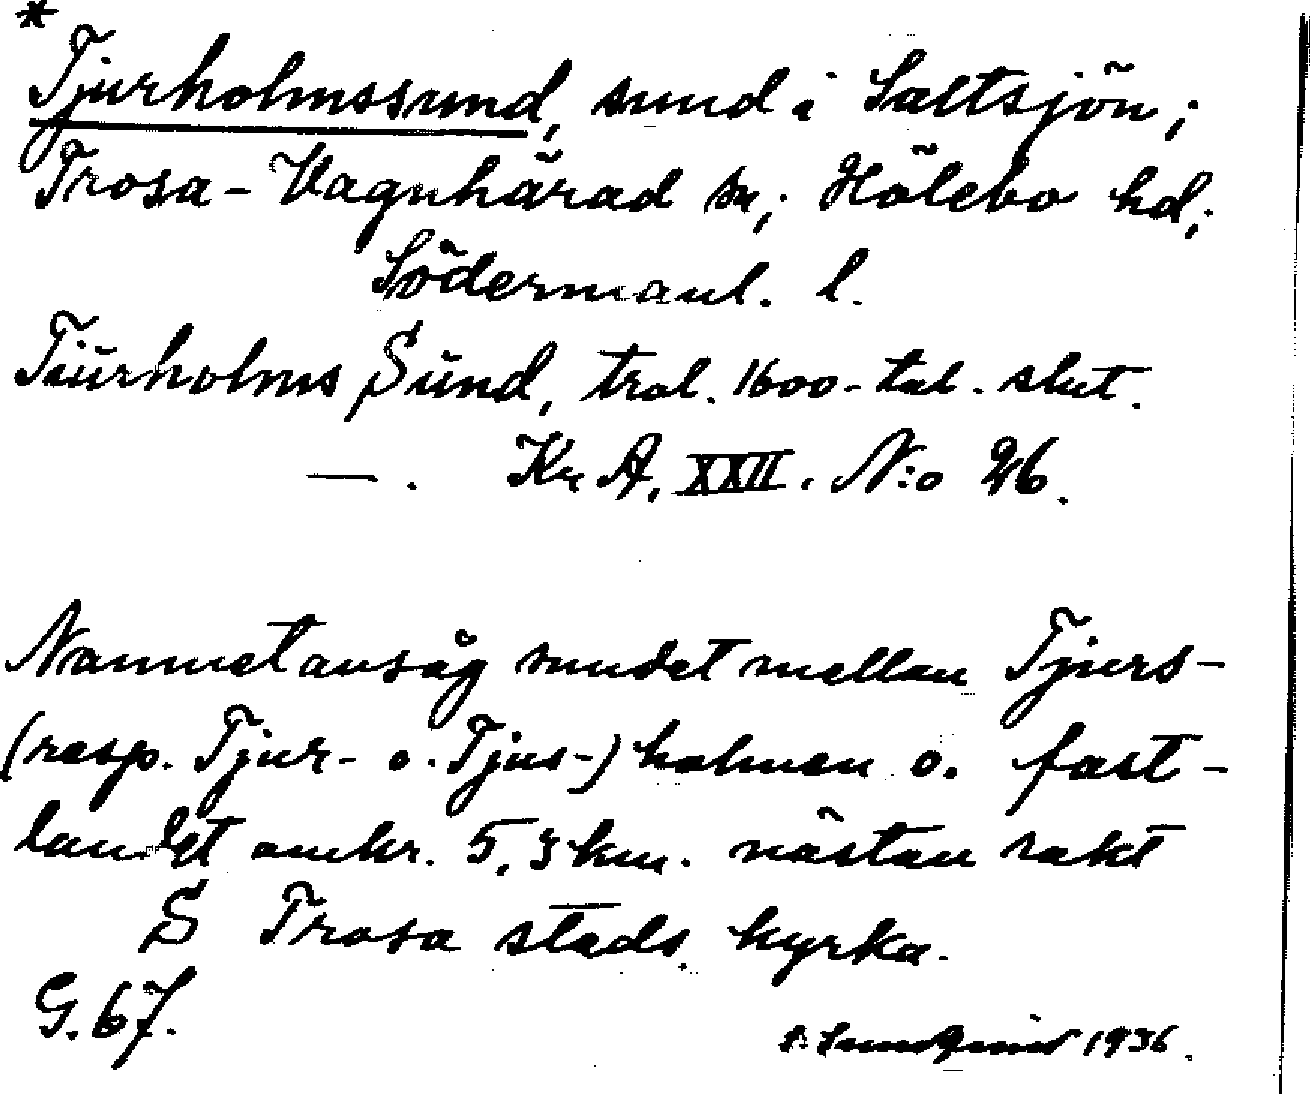 *
Tjurholmssund, sund i Saltsjön;
Trosa-Vagnhärad sn; Hölebo hd;
Södermanl. l.
Tiürholms Sünd, trol. 1600-tal. slut.
—. Kr. A. XXII. N:o 26.
Namnet ansåg sundet mellan Tjurs-
(resp. Tjur- o. Tjus-) holmen o. fast-
landet omkr. 5,3 km. nästan rakt
S Trosa stads kyrka.
G. 67.
1936.